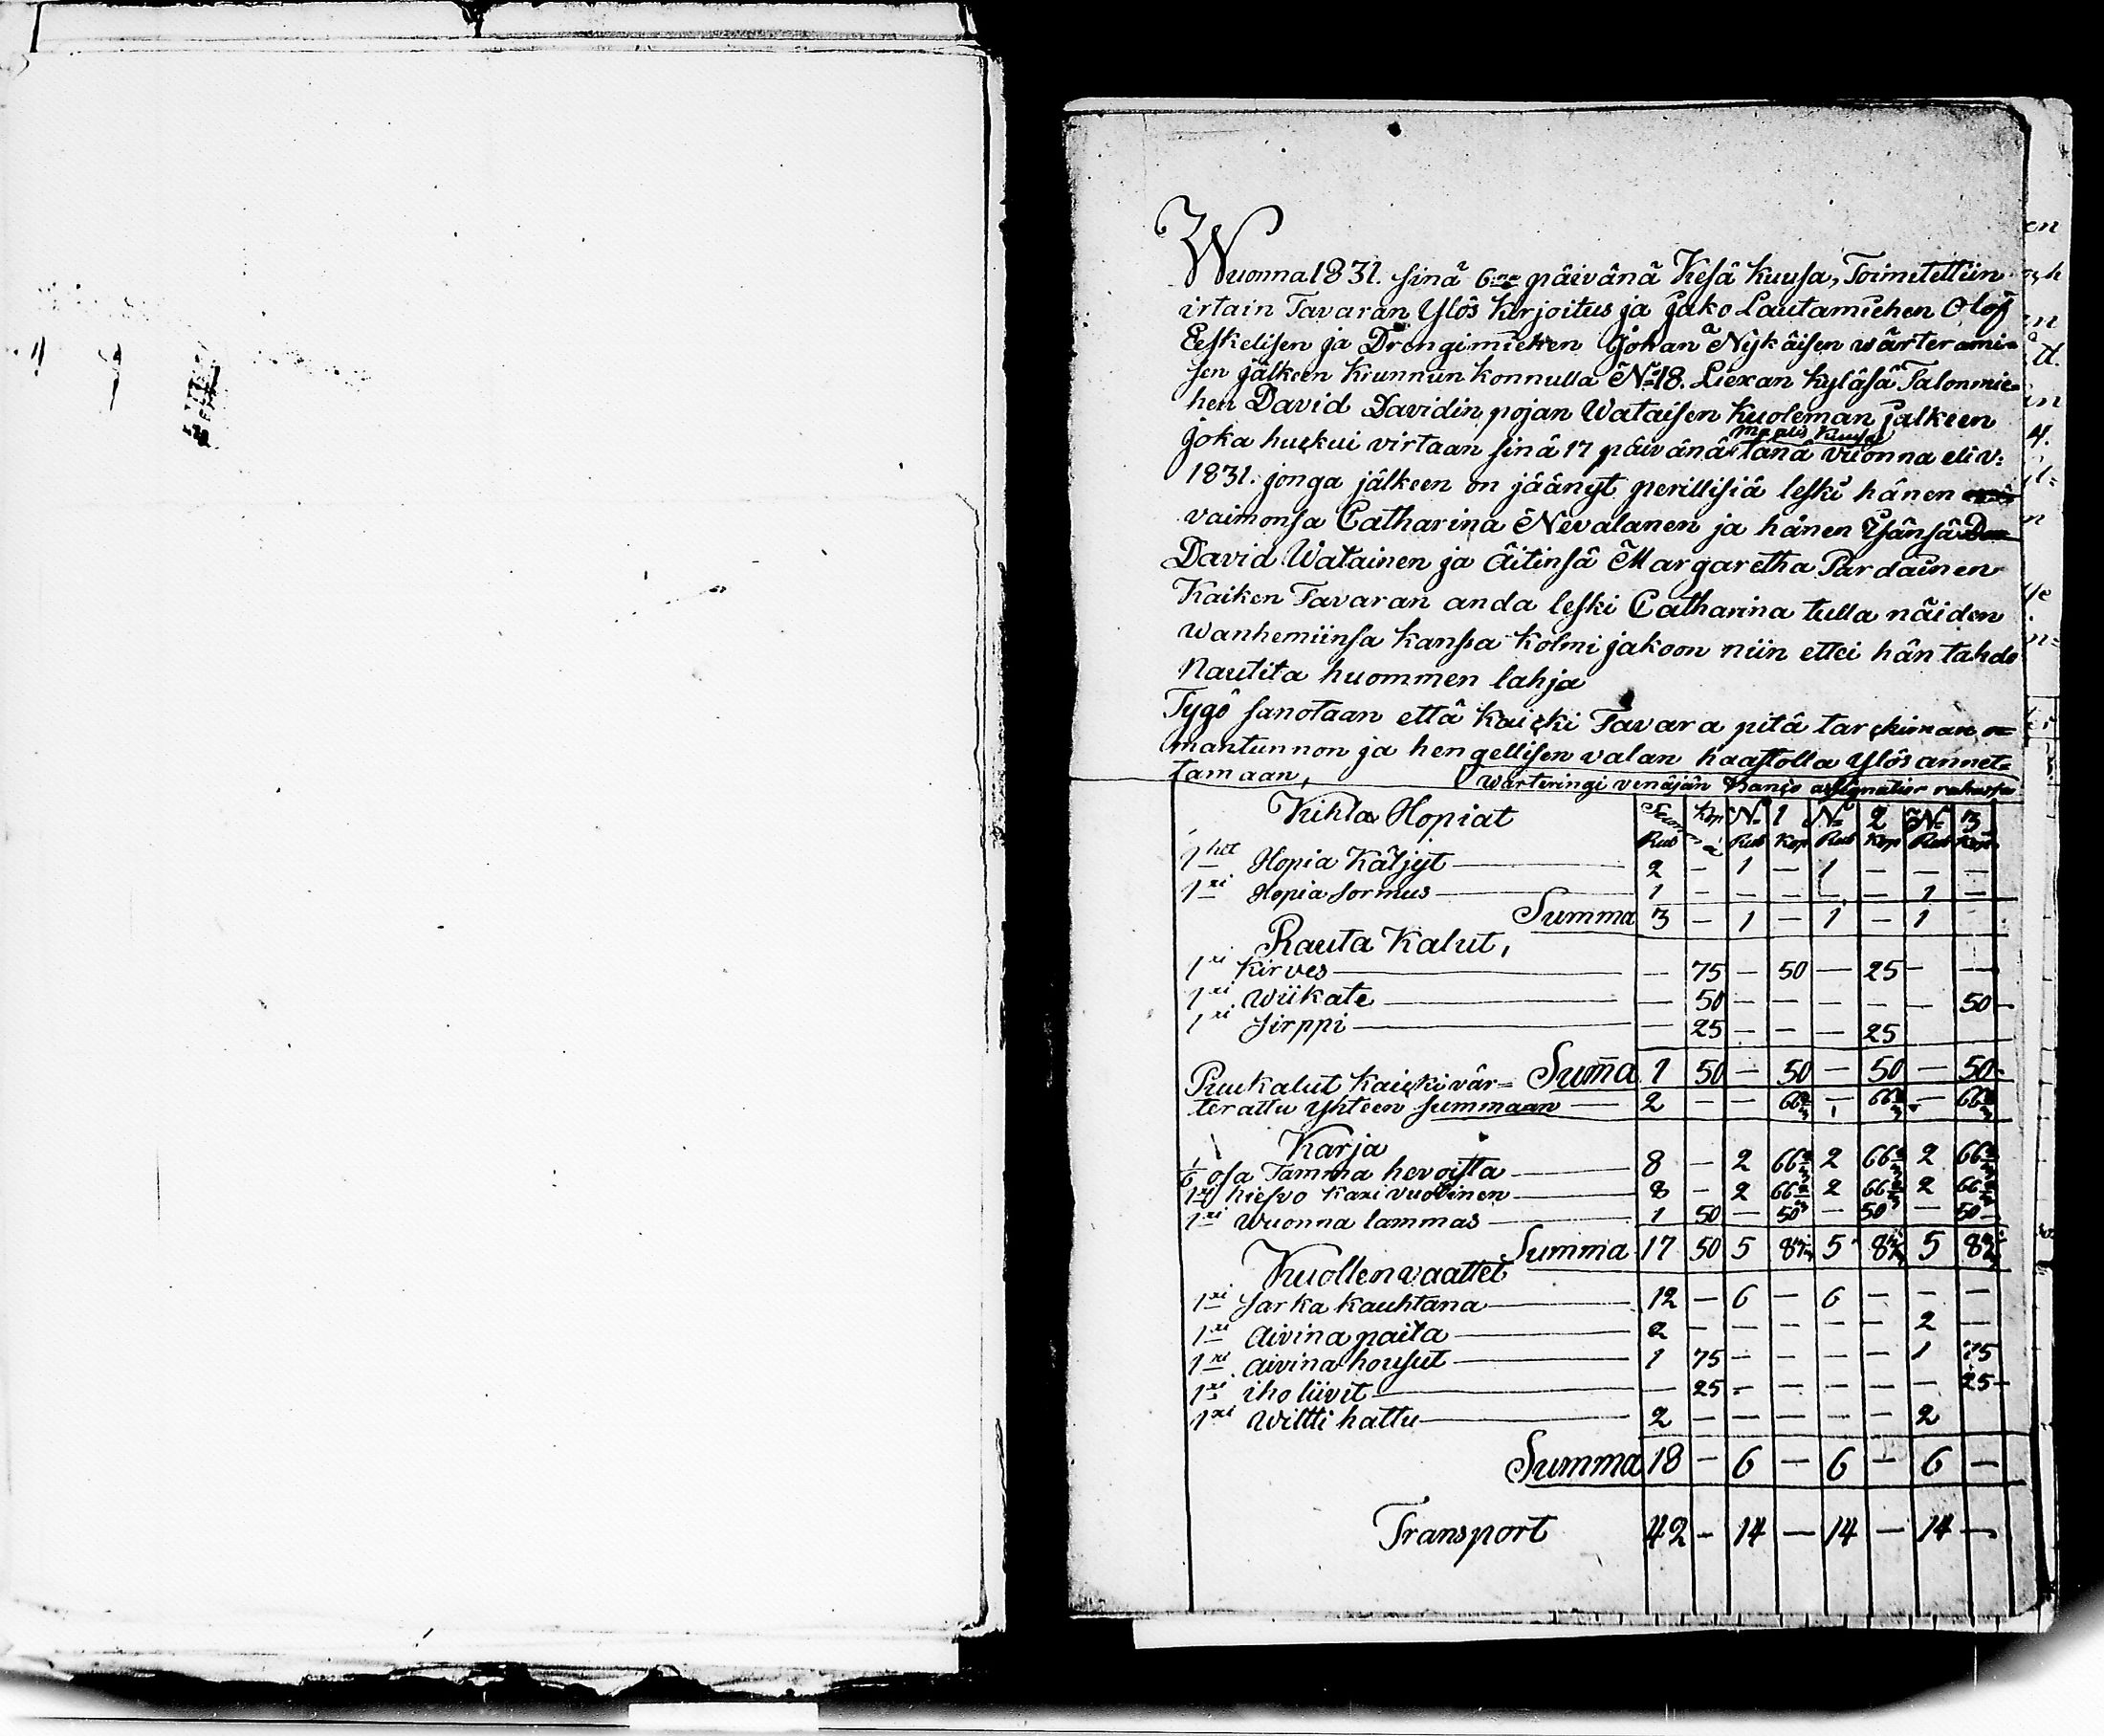 Wuonna 1831. sinä 6na päivänä Kesä kuusa, Toimitettiin
irtain Tavaran Ylös kirjoitus ja jako Lautamiehen Olof
Eeskelisen ja Drengimiehen Johan Nykäisen wärterami=
sen jälkeen krunnun konnulla No 18. Liexan kyläsä Talonmie=
hen David Davidin pojan Wataisen kuoleman jälkeen
maalis kuusa
joka huckui virtaan sinä 17 päivänä tänä vuonna eli v:
1831. jonga jälkeen on jäänyt perillisiä leski hänen
vaimonsa Catharina Nevalanen ja hänen Isänsä
David Watainen ja äitinsä Margaretha Pardainen
Kaiken Tavaran anda leski Catharina tulla näiden
wanhemiinsa kanssa kolmi jakoon niin ettei hän tahdo
Nautita huommen lahja
Tygö sanotaan että kaicki Tavara pitä tarckiman o=
mantunnon ja hengellisen valan haastolla ylös annet=
tamaan,
wärteringi venäjän Banco assignatior rahassa
Kihla Hopiat Summa Kop No 1 No 2 No 3
Rub Rub Kop Rub Kop Rub Kop
1het Hopia Käljyt 2 — 1 — 1 — — —
1xi Hopia sormus 1 — — — — — 1 —
Summa 3 — 1 — 1 — 1
Rauta Kalut,
1xi Kirves — 75 — 50 — 25 — —
1xi wiikate — 50 — — — — — 50
1xi sirppi — 25 — — — 25
Suma 1 50 — 50 — 50 — 50
Puukalut kaicki vär=
terattu yhteen summaan 2 — — 66 2/3 — 66 2/3 — 66 2/3
Karja
1/6 osa Tamma hevoista 8 — 2 66 2/3 2 66 2/3 2 66 2/3
1xi hiesvo kaxi vuotinen 8 — 2 66 2/3 2 66 2/3 2 66 2/3
1xi wuonna lammas 1 50 — 50 — 50 — 50
Summa 17 50 5 83 1/3 5 83 1/3 5 83 1/3
Kuollen vaattet
1xi sarka kauhtana 12 — 6 — 6 — — —
1xi aivina paita 2 — — — — — 2 —
1xi aivina housut 1 75 — — — — 1 75
1xi iho liivit — 25 — — — — — 25
1xi wiltti hattu 2 — — — — — 2
Summa 18 — 6 — 6 — 6 —
Transport 42 — 14 — 14 — 14 —